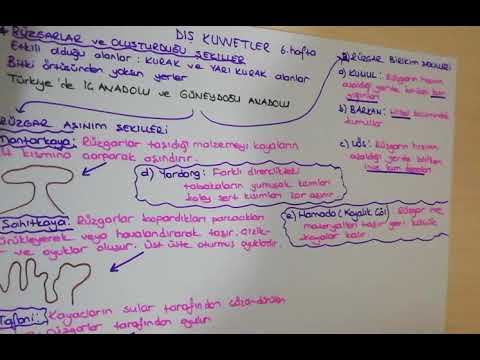 DIŞ KUVVETLER 6.hafta
* RÜZGARLAR ve OLUŞTURDUĞU ŞEKİLLER
Etkili olduğu alanlar: KURAK ve YARI KURAK alanlar
Bitki örtüsünden yoksun yerler
Türkiye'de İÇ ANADOLU ve GÜNEYDOĞU ANADOLU
RÜZGAR AŞINIM ŞEKİLLERİ
Mantarkaya: Rüzgarlar taşıdığı malzemeyi kayaların
alt kısmına çarparak aşındırır.
d) Yardang: Farklı dirençlikteki
tabakaların yumuşak kısımları
kolay sert kısımları zor aşınır
Şahitkaya: Rüzgarlar kopardıkları parçacıkları
sürükleyerek veya havalandırarak taşır. Çizik-
ler ve oyuklar oluşur. Üst üste oturmuş oyuklardır.
e) Hamada (Kayalık Çöl) Rüzgar ince
materyalleri taşır geri kalan
kayalar kalır.
Tafoni: Kayaçların sular tarafından çözündürülen
Rüzgarlar tarafından oyulur
2) RÜZGAR BİRİKİM ŞEKİLLERİ
a) KUMUL: Rüzgarın hızının
azaldığı yerde biriken kum
yığınları
b) BARKAN: Hilal biçimindeki
kumullar
c) LÖS: Rüzgarın hızının
azaldığı yerde biriken
ince kum